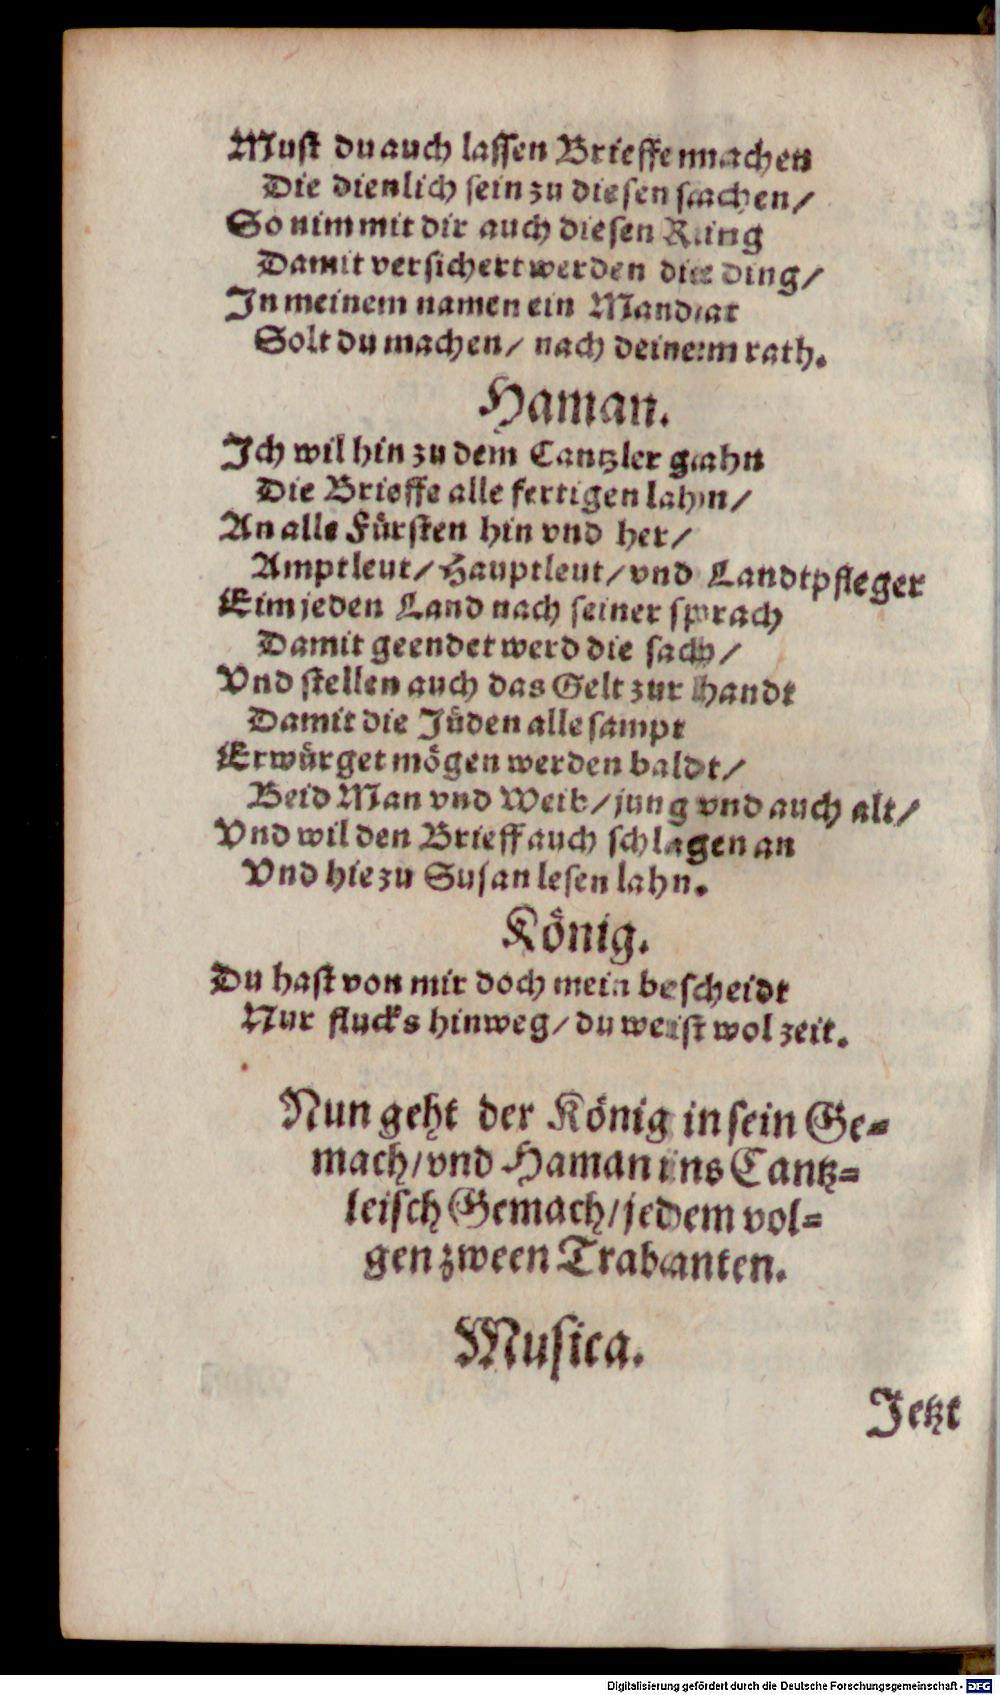 Must du auch lassen Brieffe machen
Die dienlich sein zu diesen sachen/
So nim mit dir auch diesen Ring
Damit versichert werden die ding/
In meinem namen ein Mandat
Solt du machen/ nach deinem rath.
Haman.
Ich wil hin zu dem Cantzler gahn
Die Brieffe alle fertigen lahn/
An alle Fürsten hin vnd her/
Amptleut/ Hauptleut/ vnd Landtpfleger
Eim jeden Land nach seiner sprach
Damit geendet werd die sach/
Vnd stellen auch das Gelt zur handt
Damit die Jüden alle sampt
Erwürget mögen werden baldt/
Beid Man vnd Weib/ jung vnd auch alt/
Vnd wil den Brieff auch schlagen an
Vnd hie zu Susan lesen lahn.
König.
Du hast von mir doch mein bescheidt
Nur flucks hinweg/ du weist wol zeit.
Nun geht der König in sein Ge-
mach/ vnd Haman ins Cantz-
leisch Gemach/ jedem vol-
gen zween Trabanten.
Musica.
Jetzt
Digitalisierung gefördert durch die Deutsche Forschungsgemeinschaft - DFG